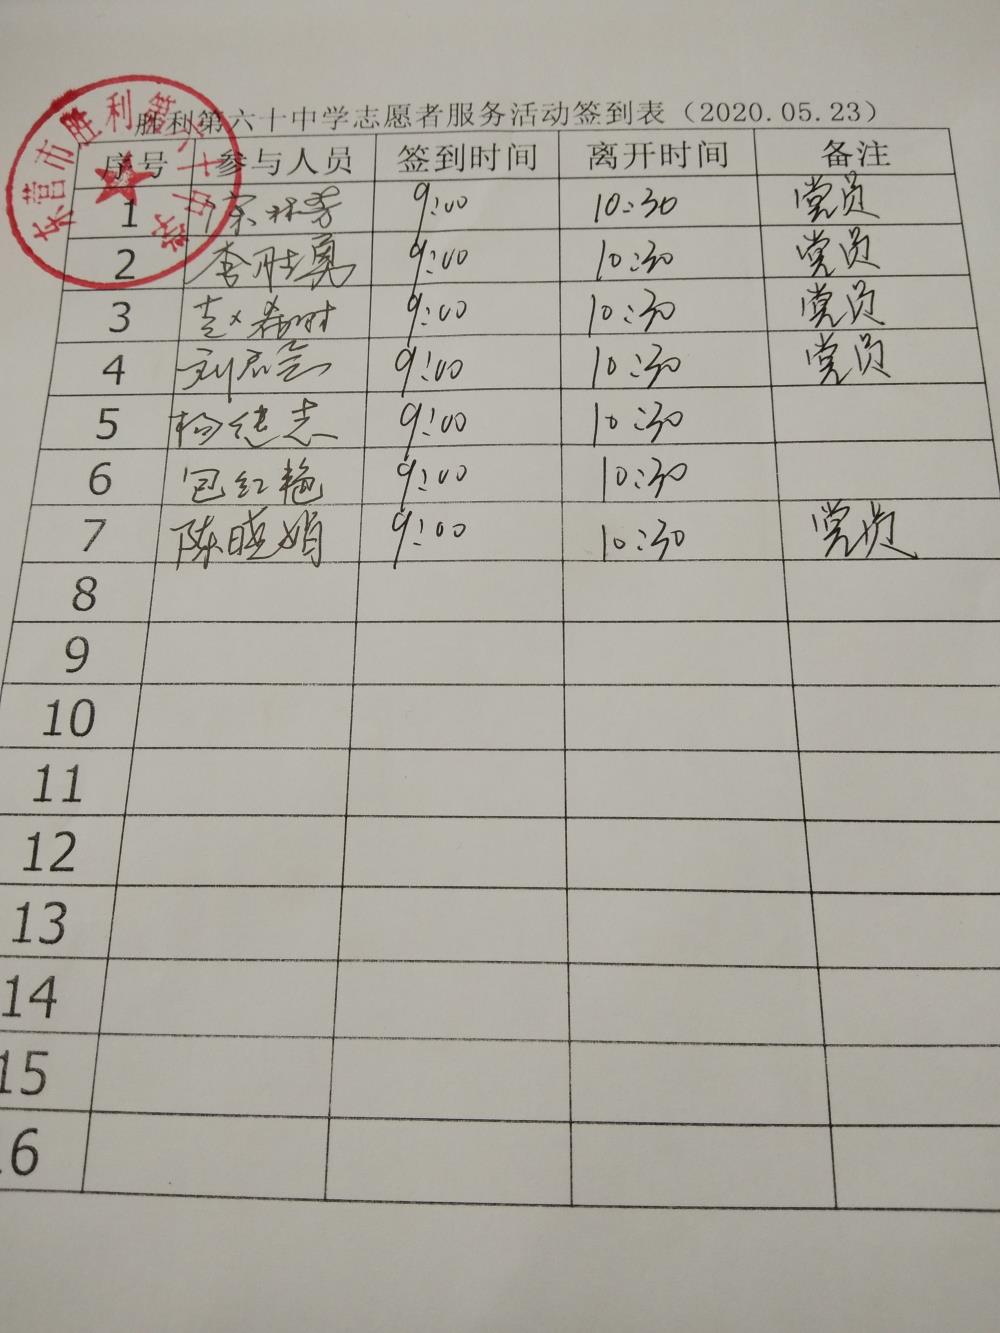 胜利第六十中学志愿者服务活动签到表（2020.05.23）
东营市胜利第六十中学
序号 参与人员 签到时间 离开时间 备注
1 宋林芳 9:00 10:30 党员
2 李胜勇 9:00 10:30 党员
3 赵 9:00 10:30 党员
4 刘 9:00 10:30 党员
5 杨继志 9:00 10:30
6 包红艳 9:00 10:30
7 陈晓娟 9:00 10:30 党员
8
9
10
11
12
13
14
15
16